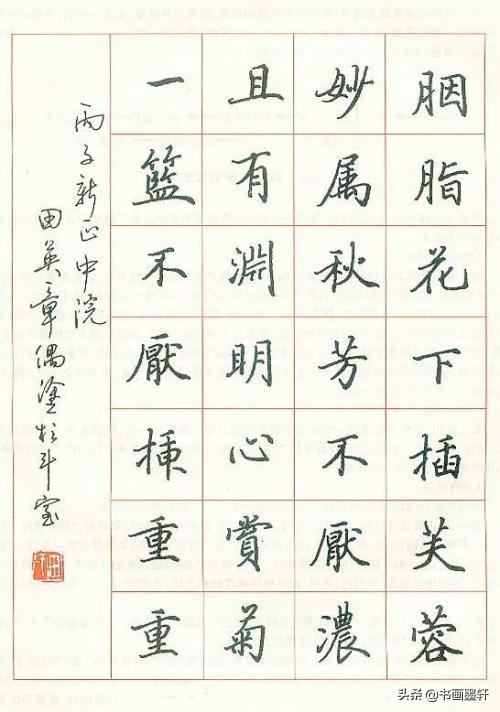 胭脂花下插芙蓉
妙属秋芳不厭濃
且有淵明心賞菊
一籃不厭揷重重
丙子新正中院
田英章偶塗於斗室
头条 @书画墨轩